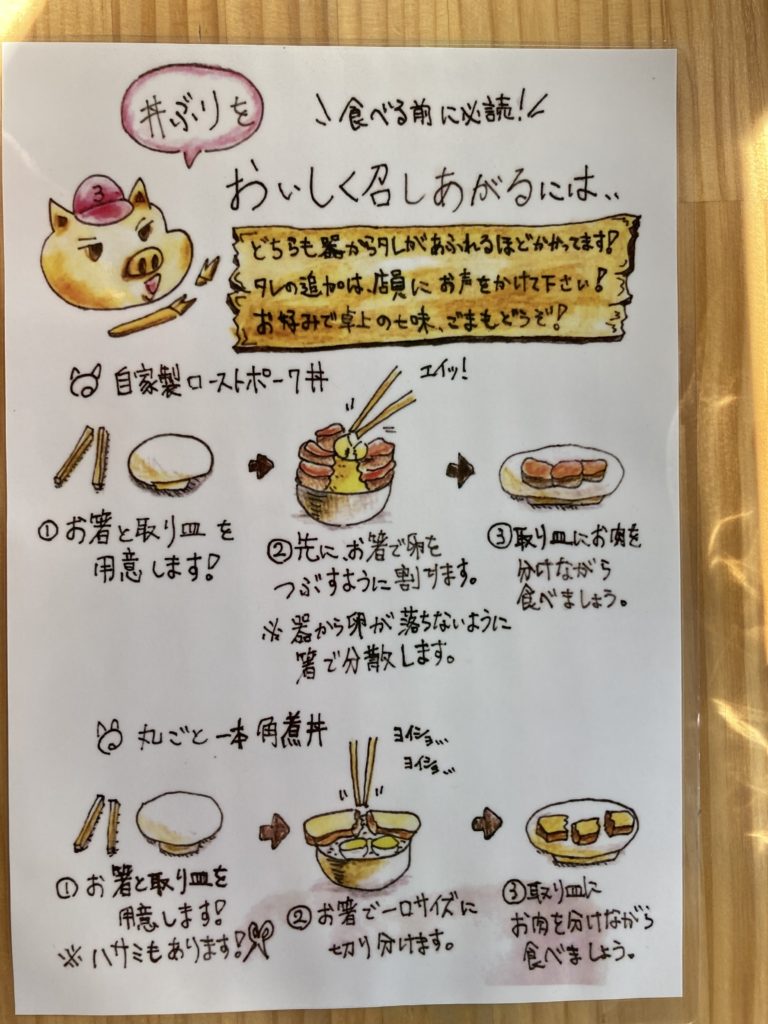 丼ぶりを
\\食べる前に必読！//
おいしく召しあがるには、、
3
どちらも器からタレがあふれるほどかかってます！
タレの追加は、店員にお声をかけて下さい！
お好みで卓上の七味、ごまもどうぞ！
自家製ローストポーク丼
エイッ！
①お箸と取り皿を
用意します！
②先に、お箸で卵を
つぶすように割ります。
※器から卵が落ちないように
箸で分散します。
③取り皿にお肉を
分けながら
食べましょう。
丸ごと一本角煮丼
ヨイショ、、
ヨイショ、、
①お箸と取り皿を
用意します！
※ハサミもあります！
②お箸で一口サイズに
切り分けます。
③取り皿に
お肉を分けながら
食べましょう。